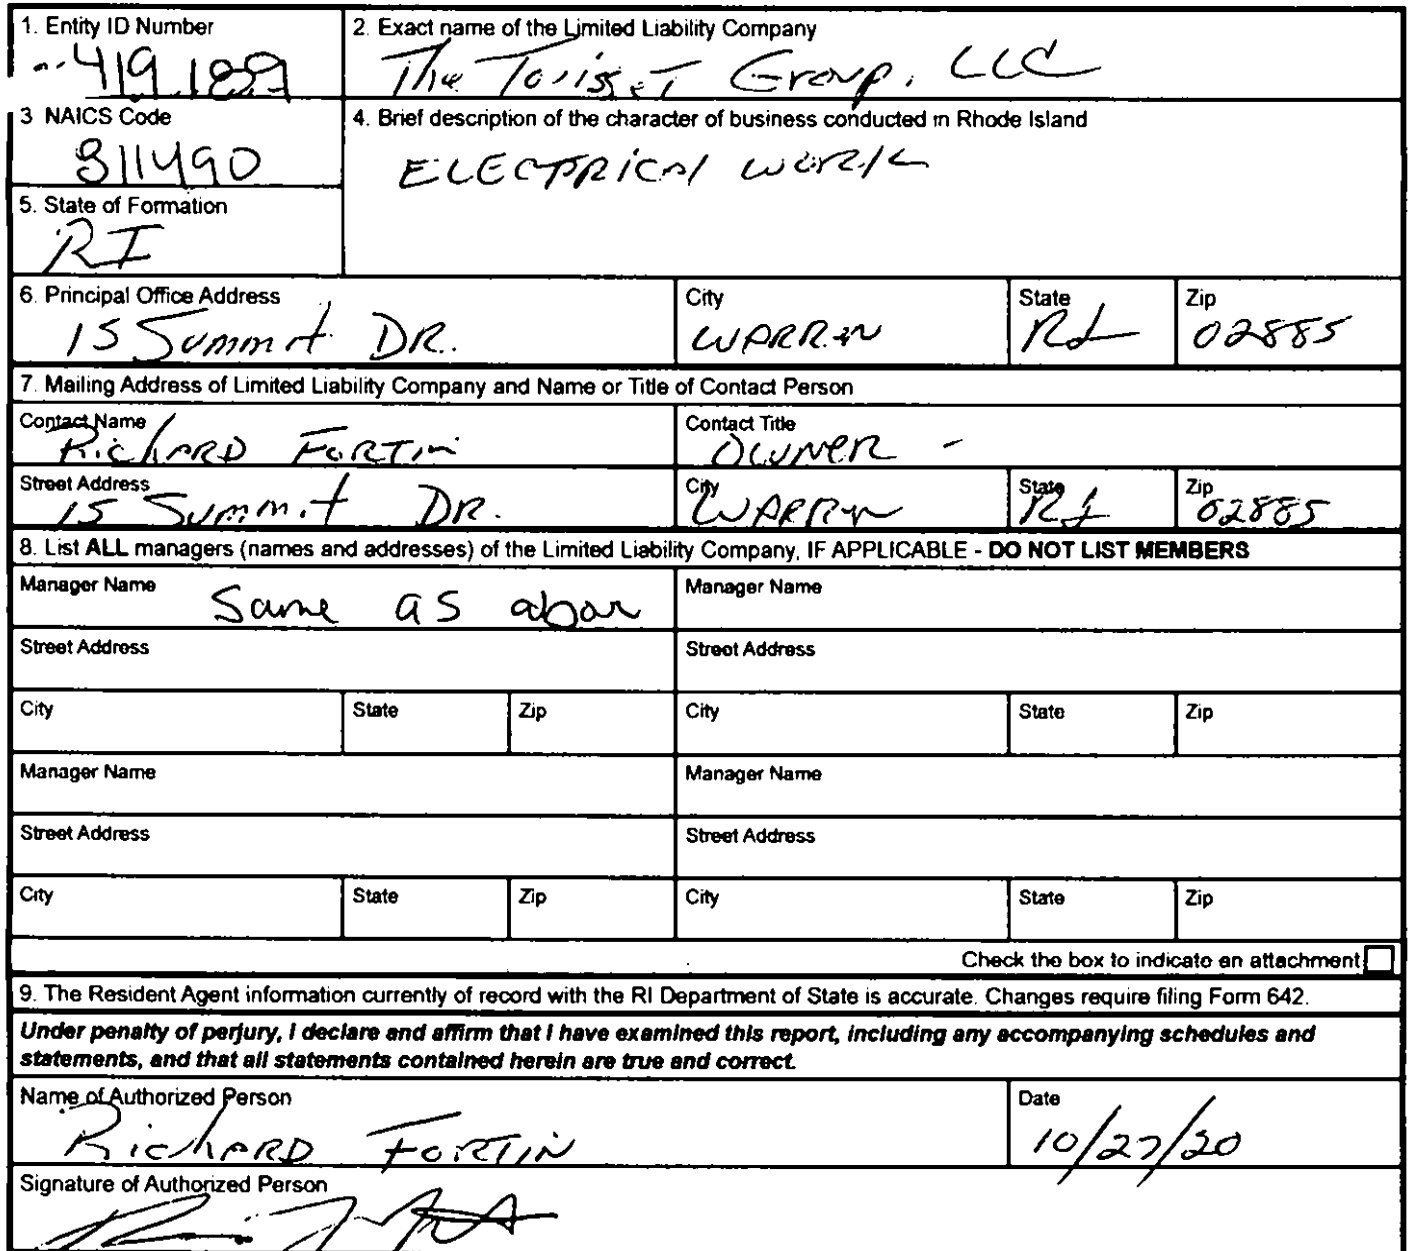 1. Entity ID Number
419189
2. Exact name of the Limited Liability Company
The Touisset Group, LLC
3 NAICS Code
811490
4. Brief description of the character of business conducted in Rhode Island
ELECTRICAl WORK
5. State of Formation
RI
6. Principal Office Address
15 Summit DR.
City
WARREN
State
RI
Zip
02885
7. Mailing Address of Limited Liability Company and Name or Title of Contact Person
Contact Name
RichARD FORTin
Contact Title
OWNER -
Street Address
15 Summit DR.
City
WARREN
State
RI
Zip
02885
8. List ALL managers (names and addresses) of the Limited Liability Company, IF APPLICABLE - DO NOT LIST MEMBERS
Manager Name
Same as above
Manager Name
Street Address
Street Address
City State Zip City State Zip
Manager Name
Manager Name
Street Address
Street Address
City State Zip City State Zip
Check the box to indicate an attachment
9. The Resident Agent information currently of record with the RI Department of State is accurate. Changes require filing Form 642.
Under penalty of perjury, I declare and affirm that I have examined this report, including any accompanying schedules and
statements, and that all statements contained herein are true and correct.
Name of Authorized Person
RichARD FORTIN
Date
10/27/20
Signature of Authorized Person